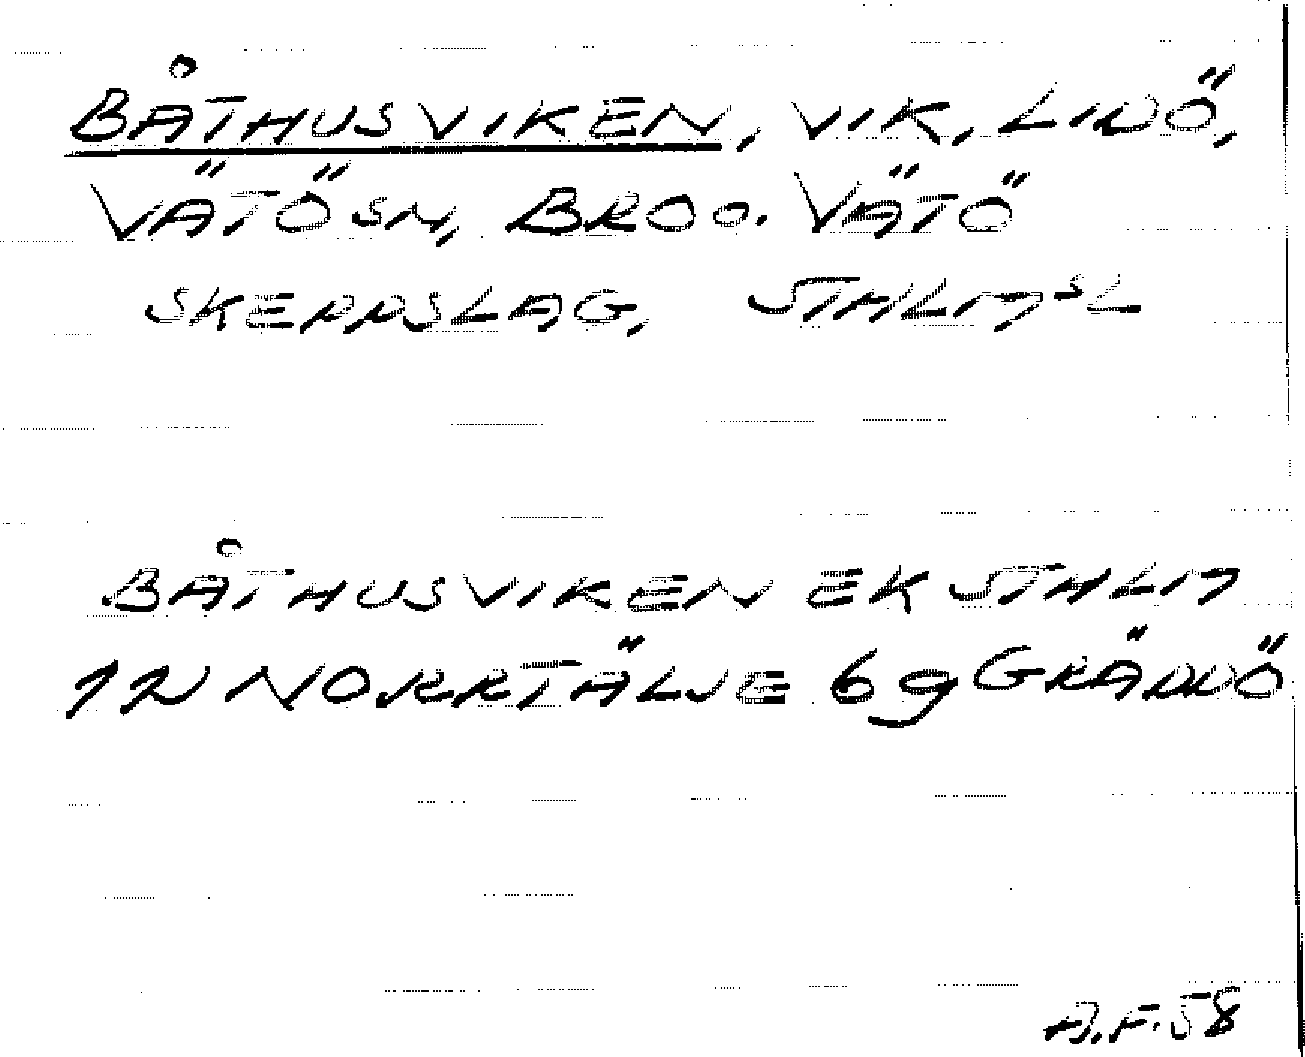 BÅTHUSVIKEN, VIK, LIDÖ,
VÄTÖ SN, BRO O. VÄTÖ
SKEPPSLAG, STHLMSL
BÅTHUSVIKEN EK STHLM
12 NORRTÄLJE 6g GRÄDDÖ
A.F.58